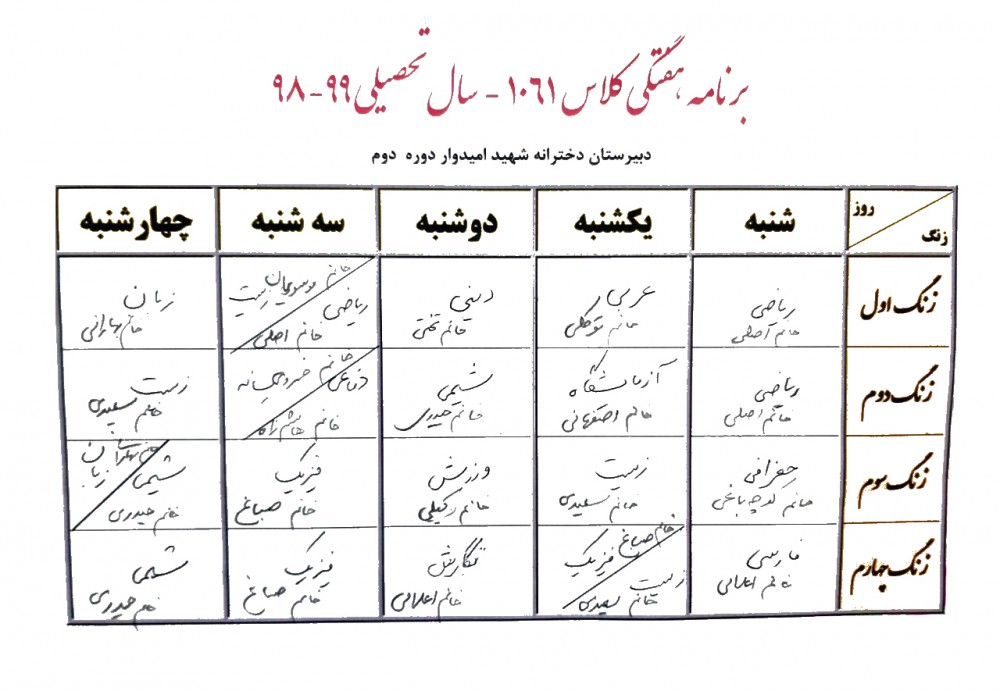 برنامه هفتگی کلاس ۱۰۶۱ - سال تحصیلی ۹۹-۹۸
دبیرستان دخترانه شهید امیدوار دوره دوم
روز
زنگ
شنبه
یکشنبه
دوشنبه
سه شنبه
چهارشنبه
زنگ اول
ریاضی
خانم اصلی
عربی
خانم توکلی
دینی
خانم
خانم
زیست
ریاضی
خانم اصلی
زبان
خانم
زنگ دوم
ریاضی
خانم اصلی
آزمایشگاه
خانم اصفهانی
شیمی
خانم حیدری
خانم
دفاعی
خانم
زیست
خانم سعیدی
زنگ سوم
جغرافی
خانم
زیست
خانم سعیدی
ورزش
خانم وکیلی
فیزیک
خانم صباغ
زبان
شیمی
خانم حیدری
زنگ چهارم
فارسی
خانم اعلامی
خانم صباغ
فیزیک
زیست
خانم سعیدی
نگارش
خانم اعلامی
فیزیک
خانم صباغ
شیمی
خانم حیدری